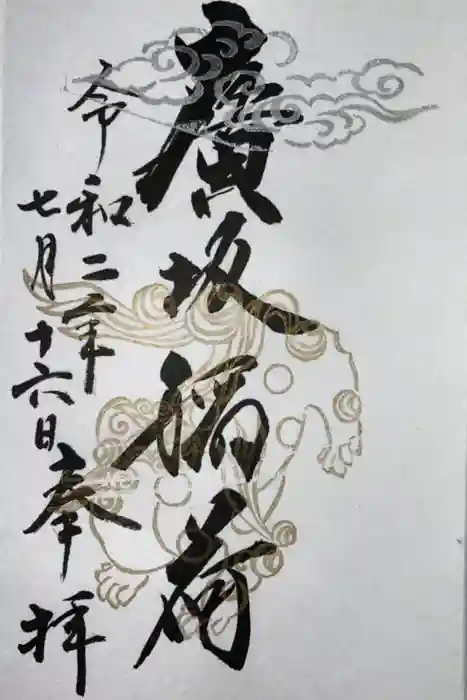 廣坂稲荷
令和二年
七月十六日
奉拝